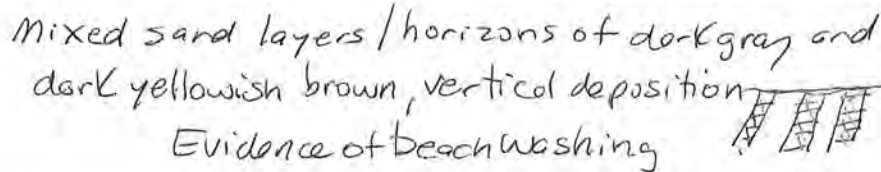 Mixed sand layers/horizons of dark gray and
dark yellowish brown, vertical deposition
Evidence of beach washing